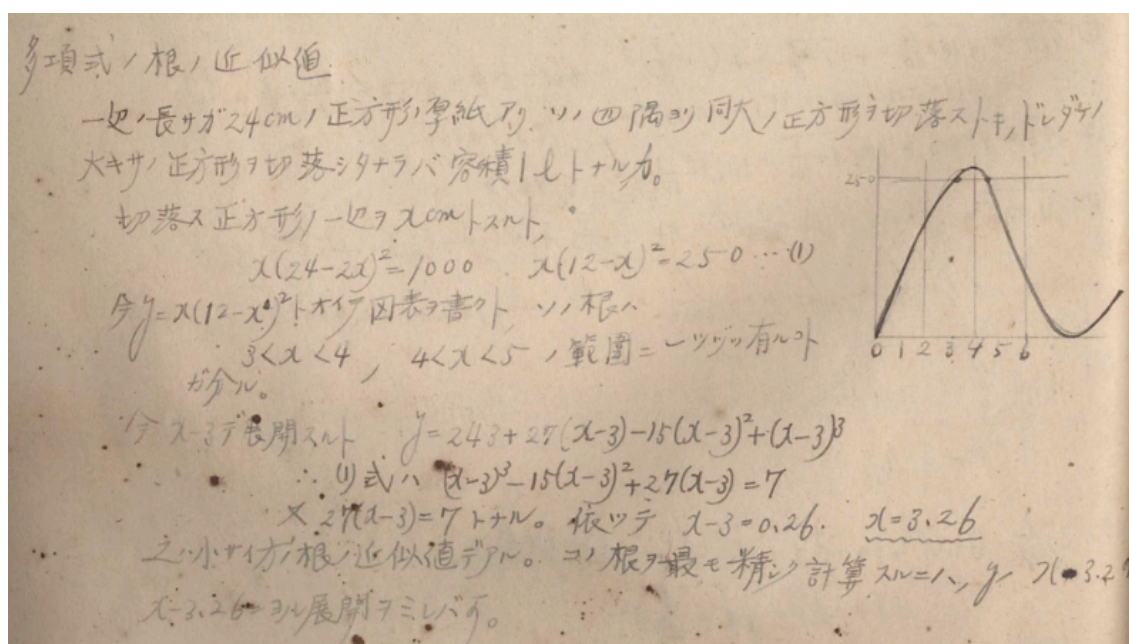 多項式ノ根ノ近似値
一辺ノ長サガ24cmノ正方形ノ厚紙アリ、ソノ四隅ヨリ同大ノ正方形ヲ切落ストキ、ドレダケノ
大キサノ正方形ヲ切落シタナラバ容積1lトナルカ。
切落ス正方形ノ一辺ヲxcmトスルト,
x(24-2x)²=1000 x(12-x)²=250 … (1)
今y=x(12-x)²トオイテ図表ヲ書クト, ソノ根ハ
3<x<4, 4<x<5 ノ範囲ニ一ツヅツ有ルコト
ガ分ル。
今x-3デ展開スルト y=243+27(x-3)-15(x-3)²+(x-3)³
∴(1)式ハ (x-3)³-15(x-3)²+27(x-3)=7
× 27(x-3)=7トナル。依ツテ x-3=0.26. x=3.26
之ハ小サイ方ノ根ノ近似値デアル。コノ根ヲ最モ精シク計算スルニハ, y, x 3.2
x-3.26ニヨル展開ヲミレバ可。
250
0 1 2 3 4 5 6